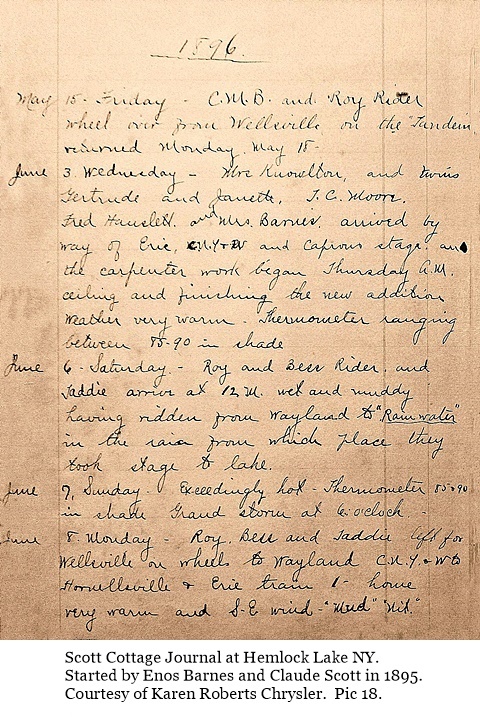 1896.
May 15 - Friday - C.M.B. and Roy Rider
wheel over from Wellsville on the "Tandem
returned Monday May 18 -
June 3. Wednesday - Mrs Knowlton, and twins
Gertrude and Janette, T.C. Moore,
Fred Hauslett, and Mrs. Barnes, arrived by
way of Erie, C.N.Y. & W and Caprous stage. and
the carpenter work began Thursday A.M.
ceiling and finishing the new addition
Weather very warm - Thermometer ranging
between 85-90 in shade
June 6 - Saturday. - Roy and Bess Rider, and
Taddie arrive at 12 M. wet and muddy
having ridden from Wayland to "Rainwater"
in the rain from which place they
took stage to lake.
June 7, Sunday - Exceedingly hot - Thermometer 85 & 90
in shade Grand storm at 6. o'clock -
June 8. Monday - Roy, Bess and Taddie left for
Wellsville on wheels to Wayland C.N.Y. & W to
Hornellsville & Erie train home
very warm and S-E wind - "Mud" "Nit."
Scott Cottage Journal at Hemlock Lake NY.
Started by Enos Barnes and Claude Scott in 1895.
Courtesy of Karen Roberts Chrysler. Pic 18.